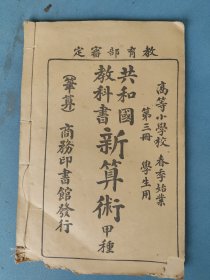 教育部審定
高等小學校 春季始業
第三冊 學生用
共和國
教科書
新算術
甲種
(筆算)
商務印書館發行